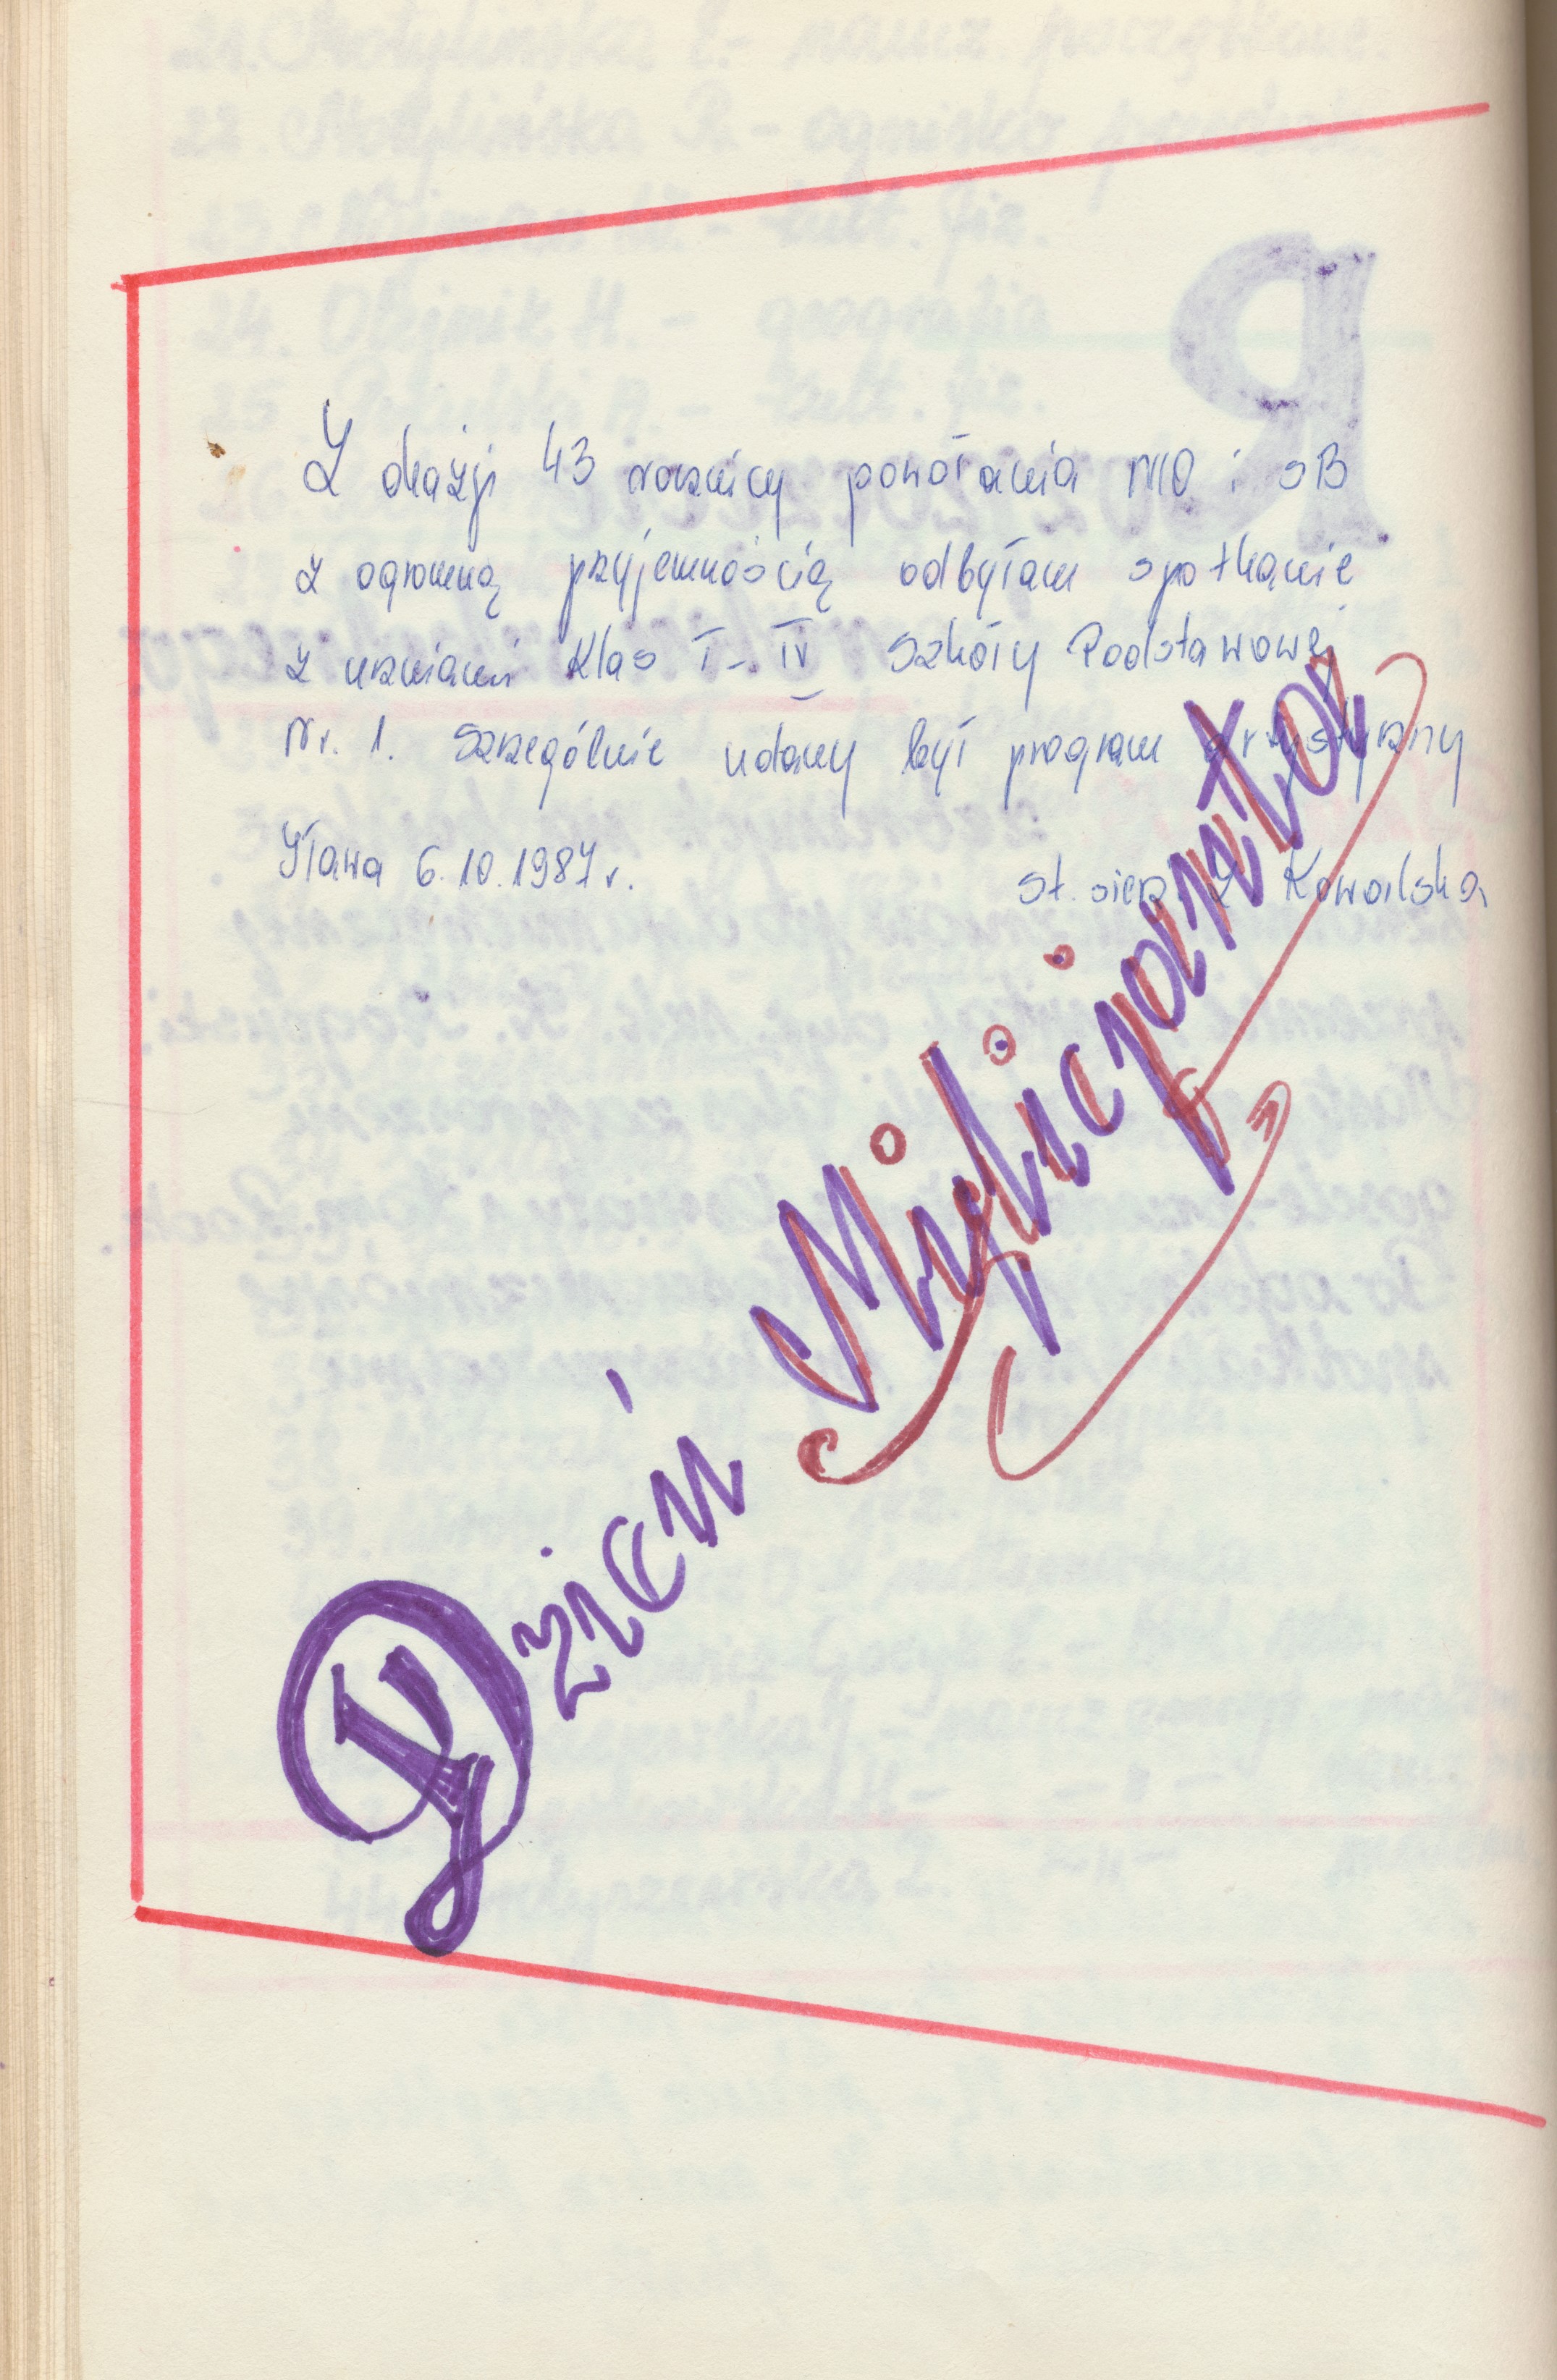 Z okazji 43 rocznicy powołania MO i SB
z ogromną przyjemnością odbyłam spotkanie
z uczniami klas I-IV Szkoły Podstawowej
Nr. 1. Szczególnie udany był program artystyczny
Iława 6.10.1987 r.
st. sierż. Kowalska
Dzień Milicjanta